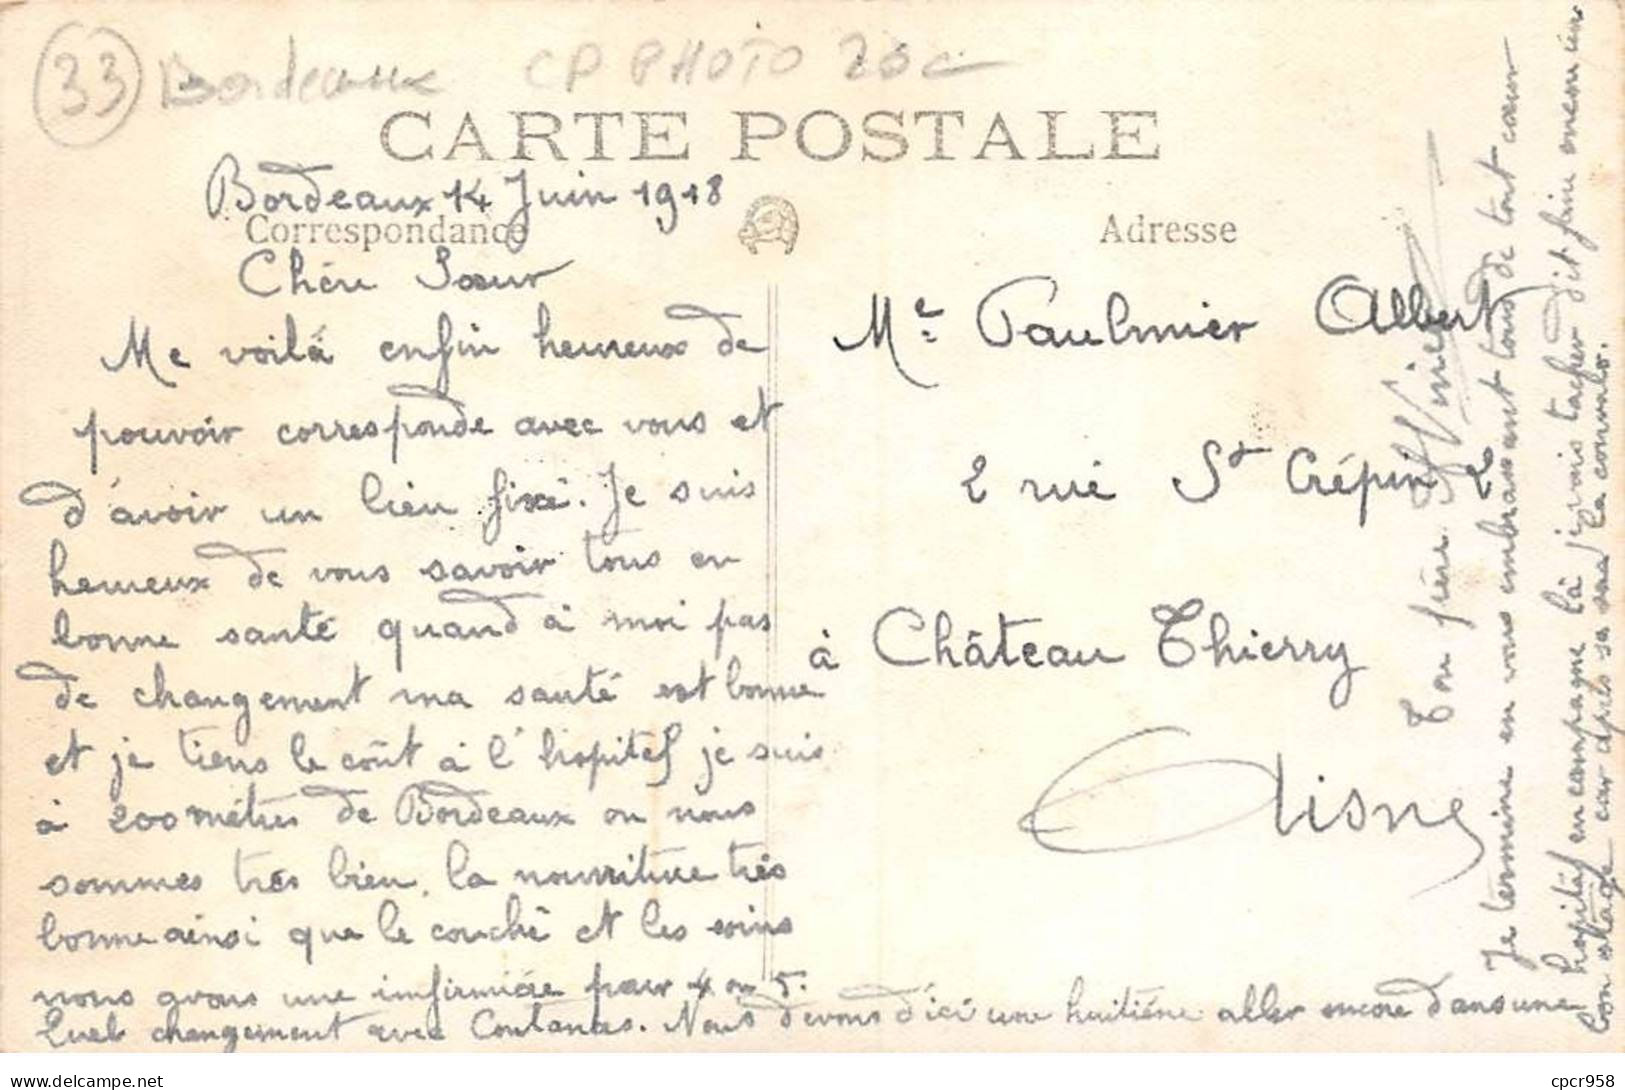 33 Bordeaux CP PHOTO 20c
CARTE POSTALE
Bordeaux 14 Juin 1918
Correspondance
Adresse
Chére Sœur
Me voilà enfin heureux de
pouvoir corresponde avec vous et
d'avoir un lieu fixé. Je suis
heureux de vous savoir tous en
bonne santé quand à moi pas
de changement ma santé est bonne
et je tiens le coût à l'hopital je suis
à 200 métres de Bordeaux ou nous
sommes trés bien, la nourriture trés
bonne ainsi que le couché et les soins
nous avons une infirmiére pour 4 ou 5.
Quel changement avec Coutances. Nous devons d'ici une huitiéne aller encore dans une
hopital en campagne là j'
vais tacher
faire encore un
bon
car aprés sa sera la convalo.
Je termine en vous embrassant tous de tout cœur
Ton frére
Me Paulmier Albert
2 rue St Crépin 2
à Château Thierry
Aisne
cpcr958